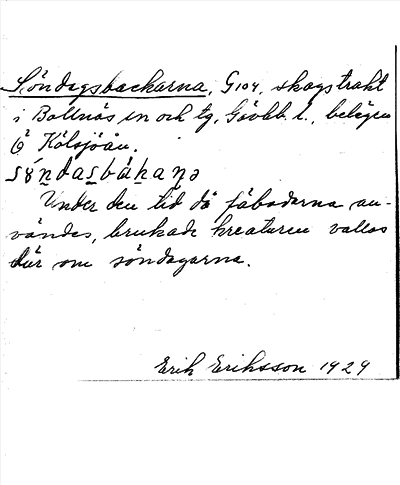 Söndagsbackarna, G104, skogstrakt
i Bollnäs sn och tg, Gävlb. l., belägen
Ö Kölsjöån.
Under den tid då fäbodarna an-
vändes, brukade kreaturen vallas
där om söndagarna.
Erik Eriksson 1929